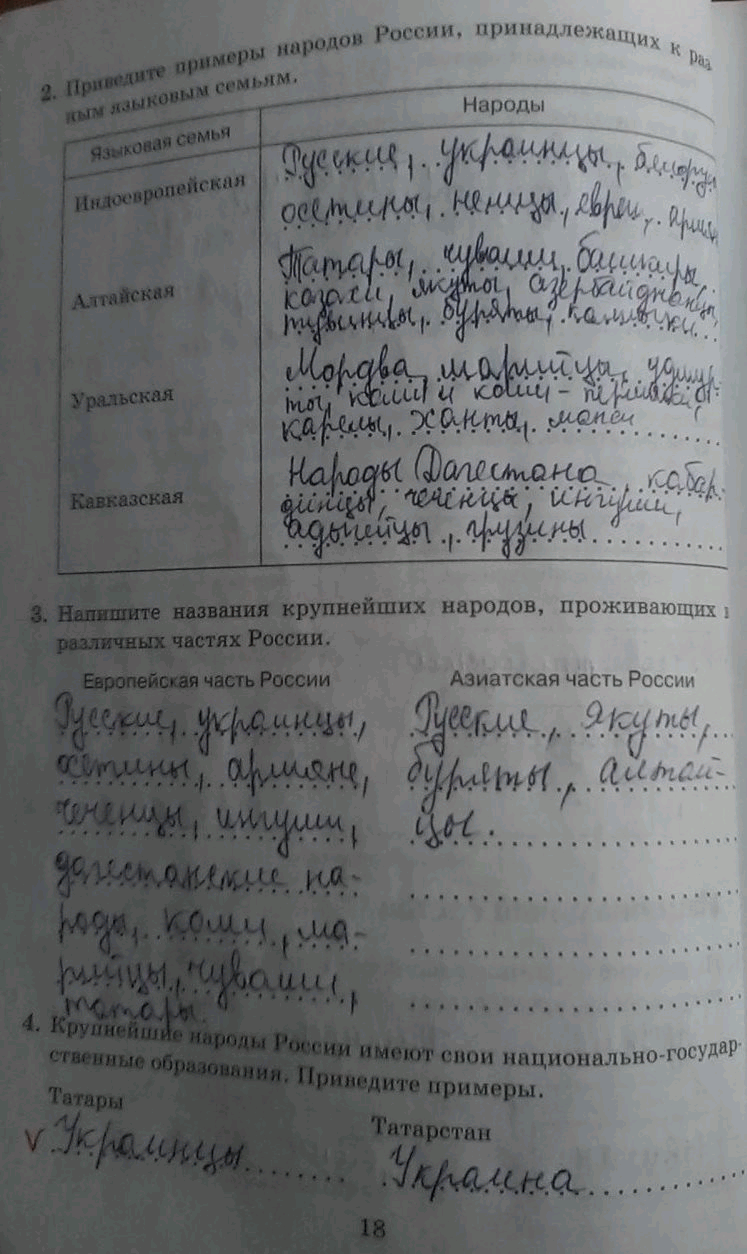 2. Приведите примеры народов России, принадлежащих к раз
ным языковым семьям.
Языковая семья
Народы
Индоевропейская
Русские, украинцы, белорус
осетины, немцы, евреи, армян
Алтайская
Татары, чуваши, башкиры,
казахи, якуты, азербайджанцы,
тувинцы, буряты, калмыки
Уральская
Мордва, марийцы, удмур-
ты, коми и коми-пермяки,
карелы, ханты, манси
Кавказская
Народы Дагестана, кабар-
динцы, чеченцы, ингуши,
адыгейцы, грузины
3. Напишите названия крупнейших народов, проживающих в
различных частях России.
Европейская часть России
Азиатская часть России
Русские, украинцы,
Русские, якуты,
осетины, армяне,
буряты, алтай-
чеченцы, ингуши,
цы.
дагестанские на-
роды, коми, ма-
рийцы, чуваши,
татары.
4. Крупнейшие народы России имеют свои национально-государ-
ственные образования. Приведите примеры.
Татары
Татарстан
V Украинцы
Украина
18